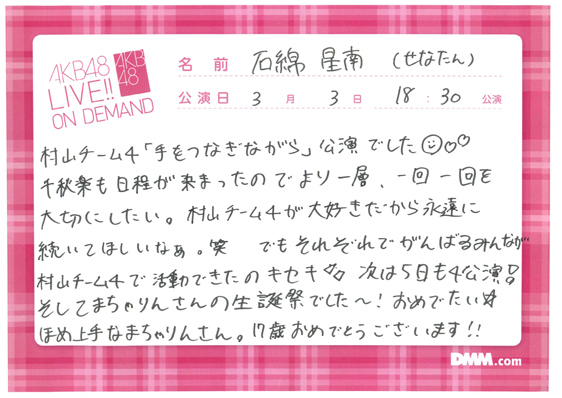 AKB48
LIVE!!
ON DEMAND
AKB
48
名前 石綿 星南 (せなたん)
公演日 3月 3日 18:30 公演
村山チーム4「手をつなぎながら」公演でした
千秋楽も日程が決まったのでより一層、一回一回を
大切にしたい。村山チーム4が大好きだから永遠に
続いてほしいなぁ。笑 でもそれぞれでがんばるみんなが
村山チーム4で活動できたのキセキ 次は5日も4公演!
そしてまちゃりんさんの生誕祭でした〜!おめでたい☆
ほめ上手なまちゃりんさん。17歳おめでとうございます!!
DMM.com